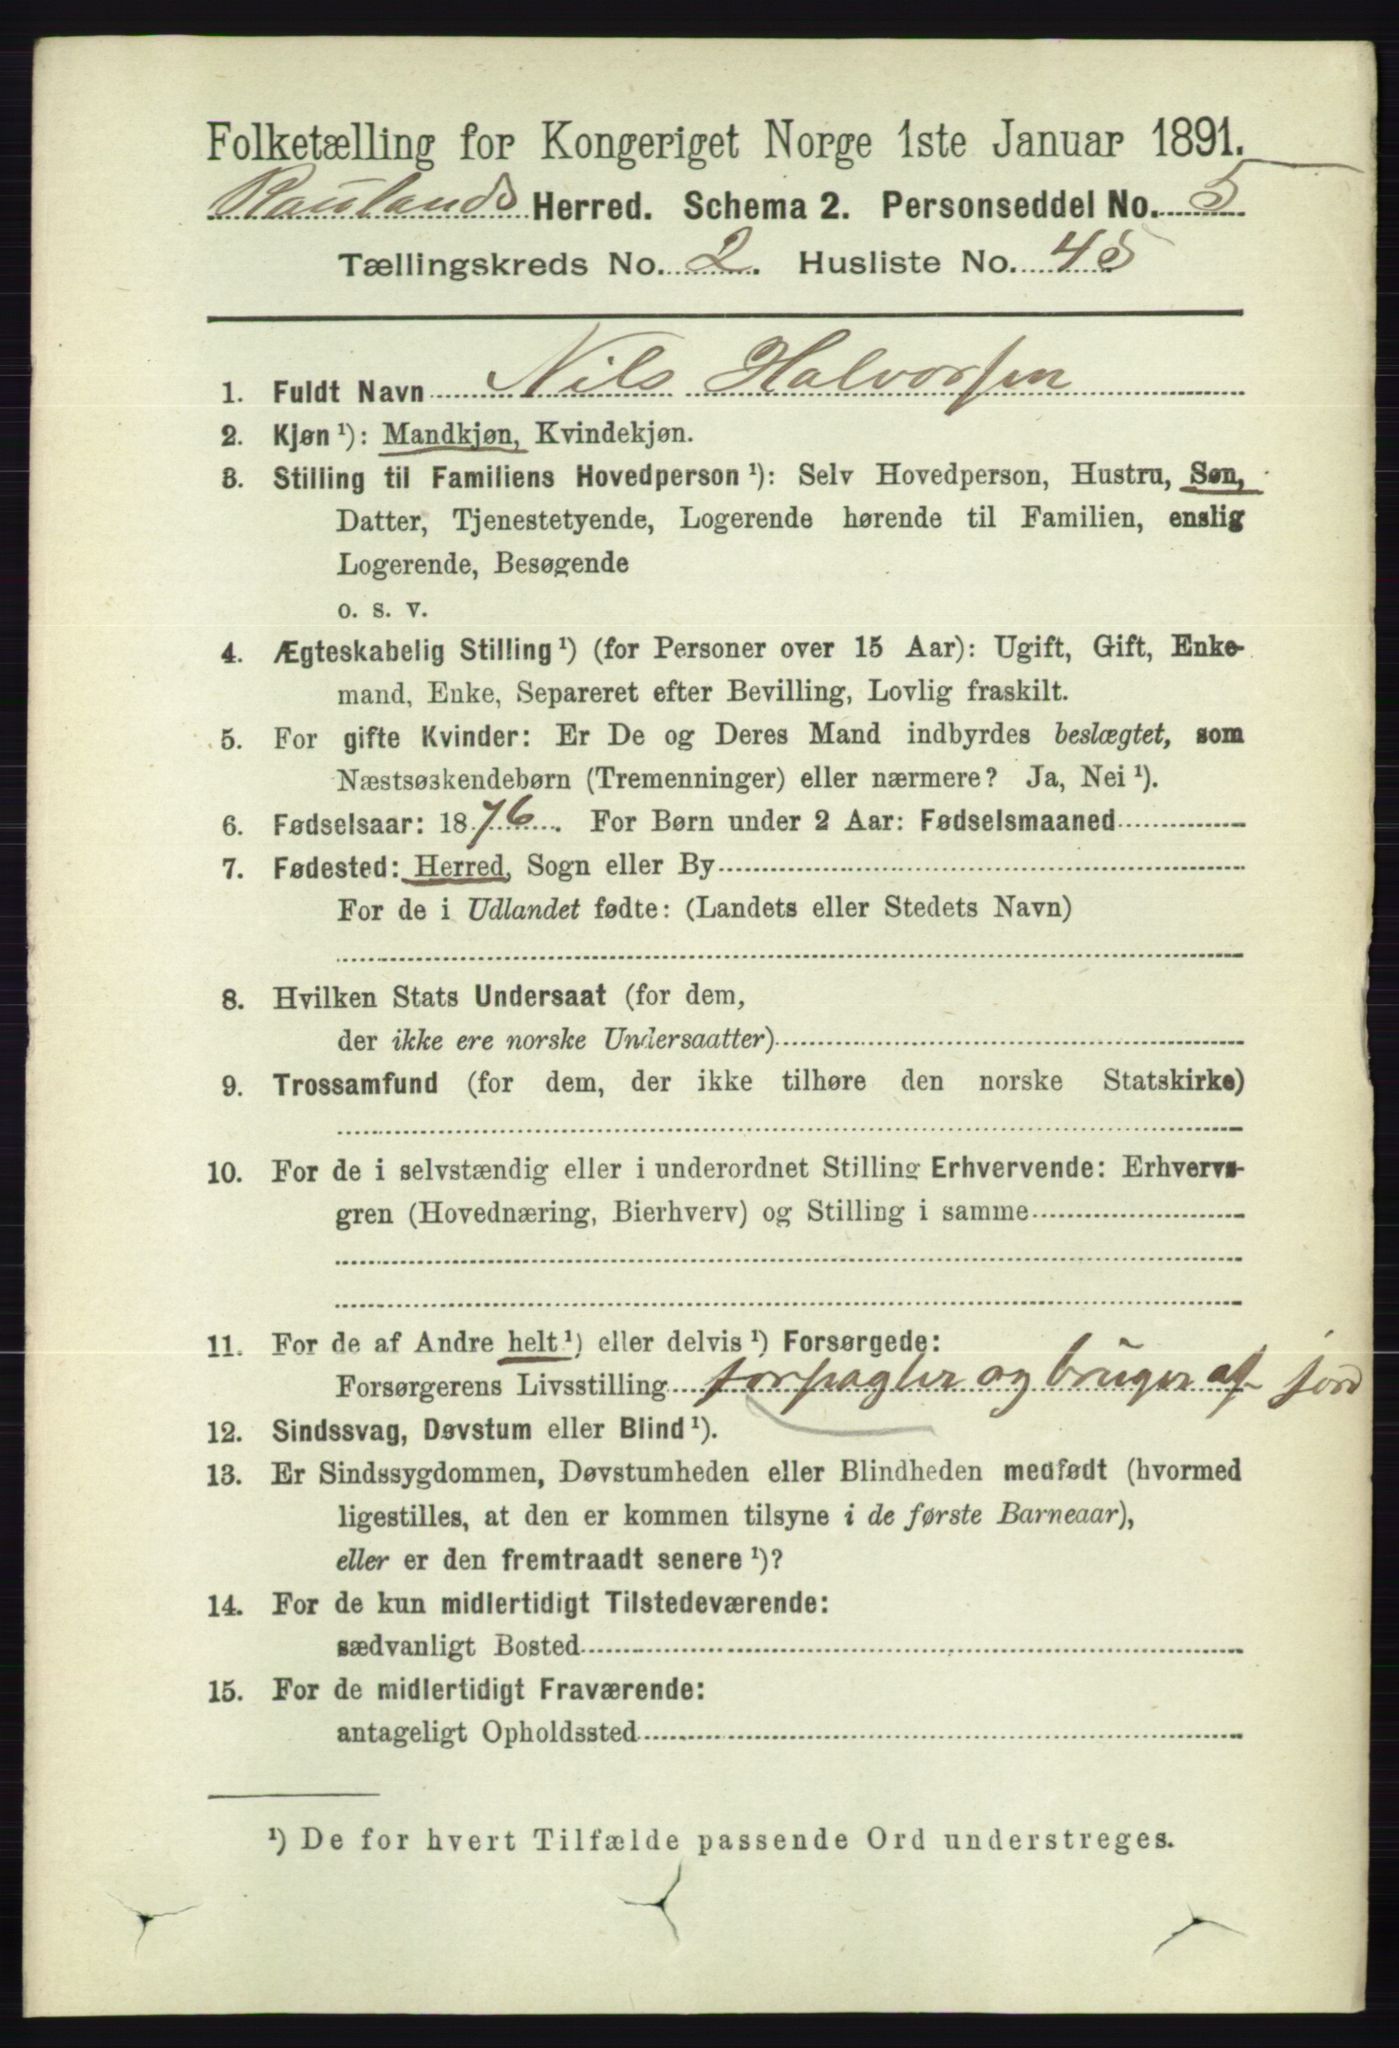 Folketælling for Kongeriget Norge 1ste Januar 1891.
Raulands Herred. Schema 2. Personseddel No. 5
Tællingskreds No. 2. Husliste No. 45
1. Fuldt Navn Nils Halvorsen
2. Kjøn ¹): Mandkjøn, Kvindekjøn.
3. Stilling til Familiens Hovedperson ¹): Selv Hovedperson, Hustru, Søn,
Datter, Tjenestetyende, Logerende hørende til Familien, enslig
Logerende, Besøgende
o. s. v.
4. Ægteskabelig Stilling ¹) (for Personer over 15 Aar): Ugift, Gift, Enke-
mand, Enke, Separeret efter Bevilling, Lovlig fraskilt.
5. For gifte Kvinder: Er De og Deres Mand indbyrdes beslægtet, som
Næstsøskendebørn (Tremenninger) eller nærmere? Ja, Nei ¹).
6. Fødselsaar: 1876. For Børn under 2 Aar: Fødselsmaaned
7. Fødested: Herred, Sogn eller By
For de i Udlandet fødte: (Landets eller Stedets Navn)
8. Hvilken Stats Undersaat (for dem,
der ikke ere norske Undersaatter)
9. Trossamfund (for dem, der ikke tilhøre den norske Statskirke)
10. For de i selvstændig eller i underordnet Stilling Erhvervende: Erhvervs-
gren (Hovednæring, Bierhverv) og Stilling i samme
11. For de af Andre helt ¹) eller delvis ¹) Forsørgede:
Forsørgerens Livsstilling forpagter og bruger af jord
12. Sindssvag, Døvstum eller Blind ¹).
13. Er Sindssygdommen, Døvstumheden eller Blindheden medfødt (hvormed
ligestilles, at den er kommen tilsyne i de første Barneaar),
eller er den fremtraadt senere ¹)?
14. For de kun midlertidigt Tilstedeværende:
sædvanligt Bosted
15. For de midlertidigt Fraværende:
antageligt Opholdssted
¹) De for hvert Tilfælde passende Ord understreges.